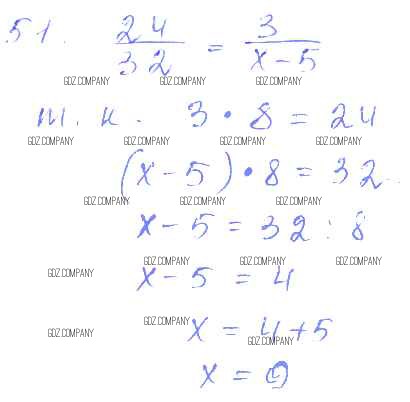 51. 24/32 = 3/(x-5)
GDZ.COMPANY GDZ.COMPANY GDZ.COMPANY
т. к. 3 • 8 = 24
GDZ.COMPANY GDZ.COMPANY GDZ.COMPANY GDZ.COMPANY
(x-5) • 8 = 32
GDZ.COMPANY GDZ.COMPANY GDZ.COMPANY
x-5 = 32 : 8
GDZ.COMPANY GDZ.COMPANY GDZ.COMPANY
GDZ.COMPANY
x-5 = 4
GDZ.COMPANY
x = 4+5
GDZ.COMPANY GDZ.COMPANY
x = 9